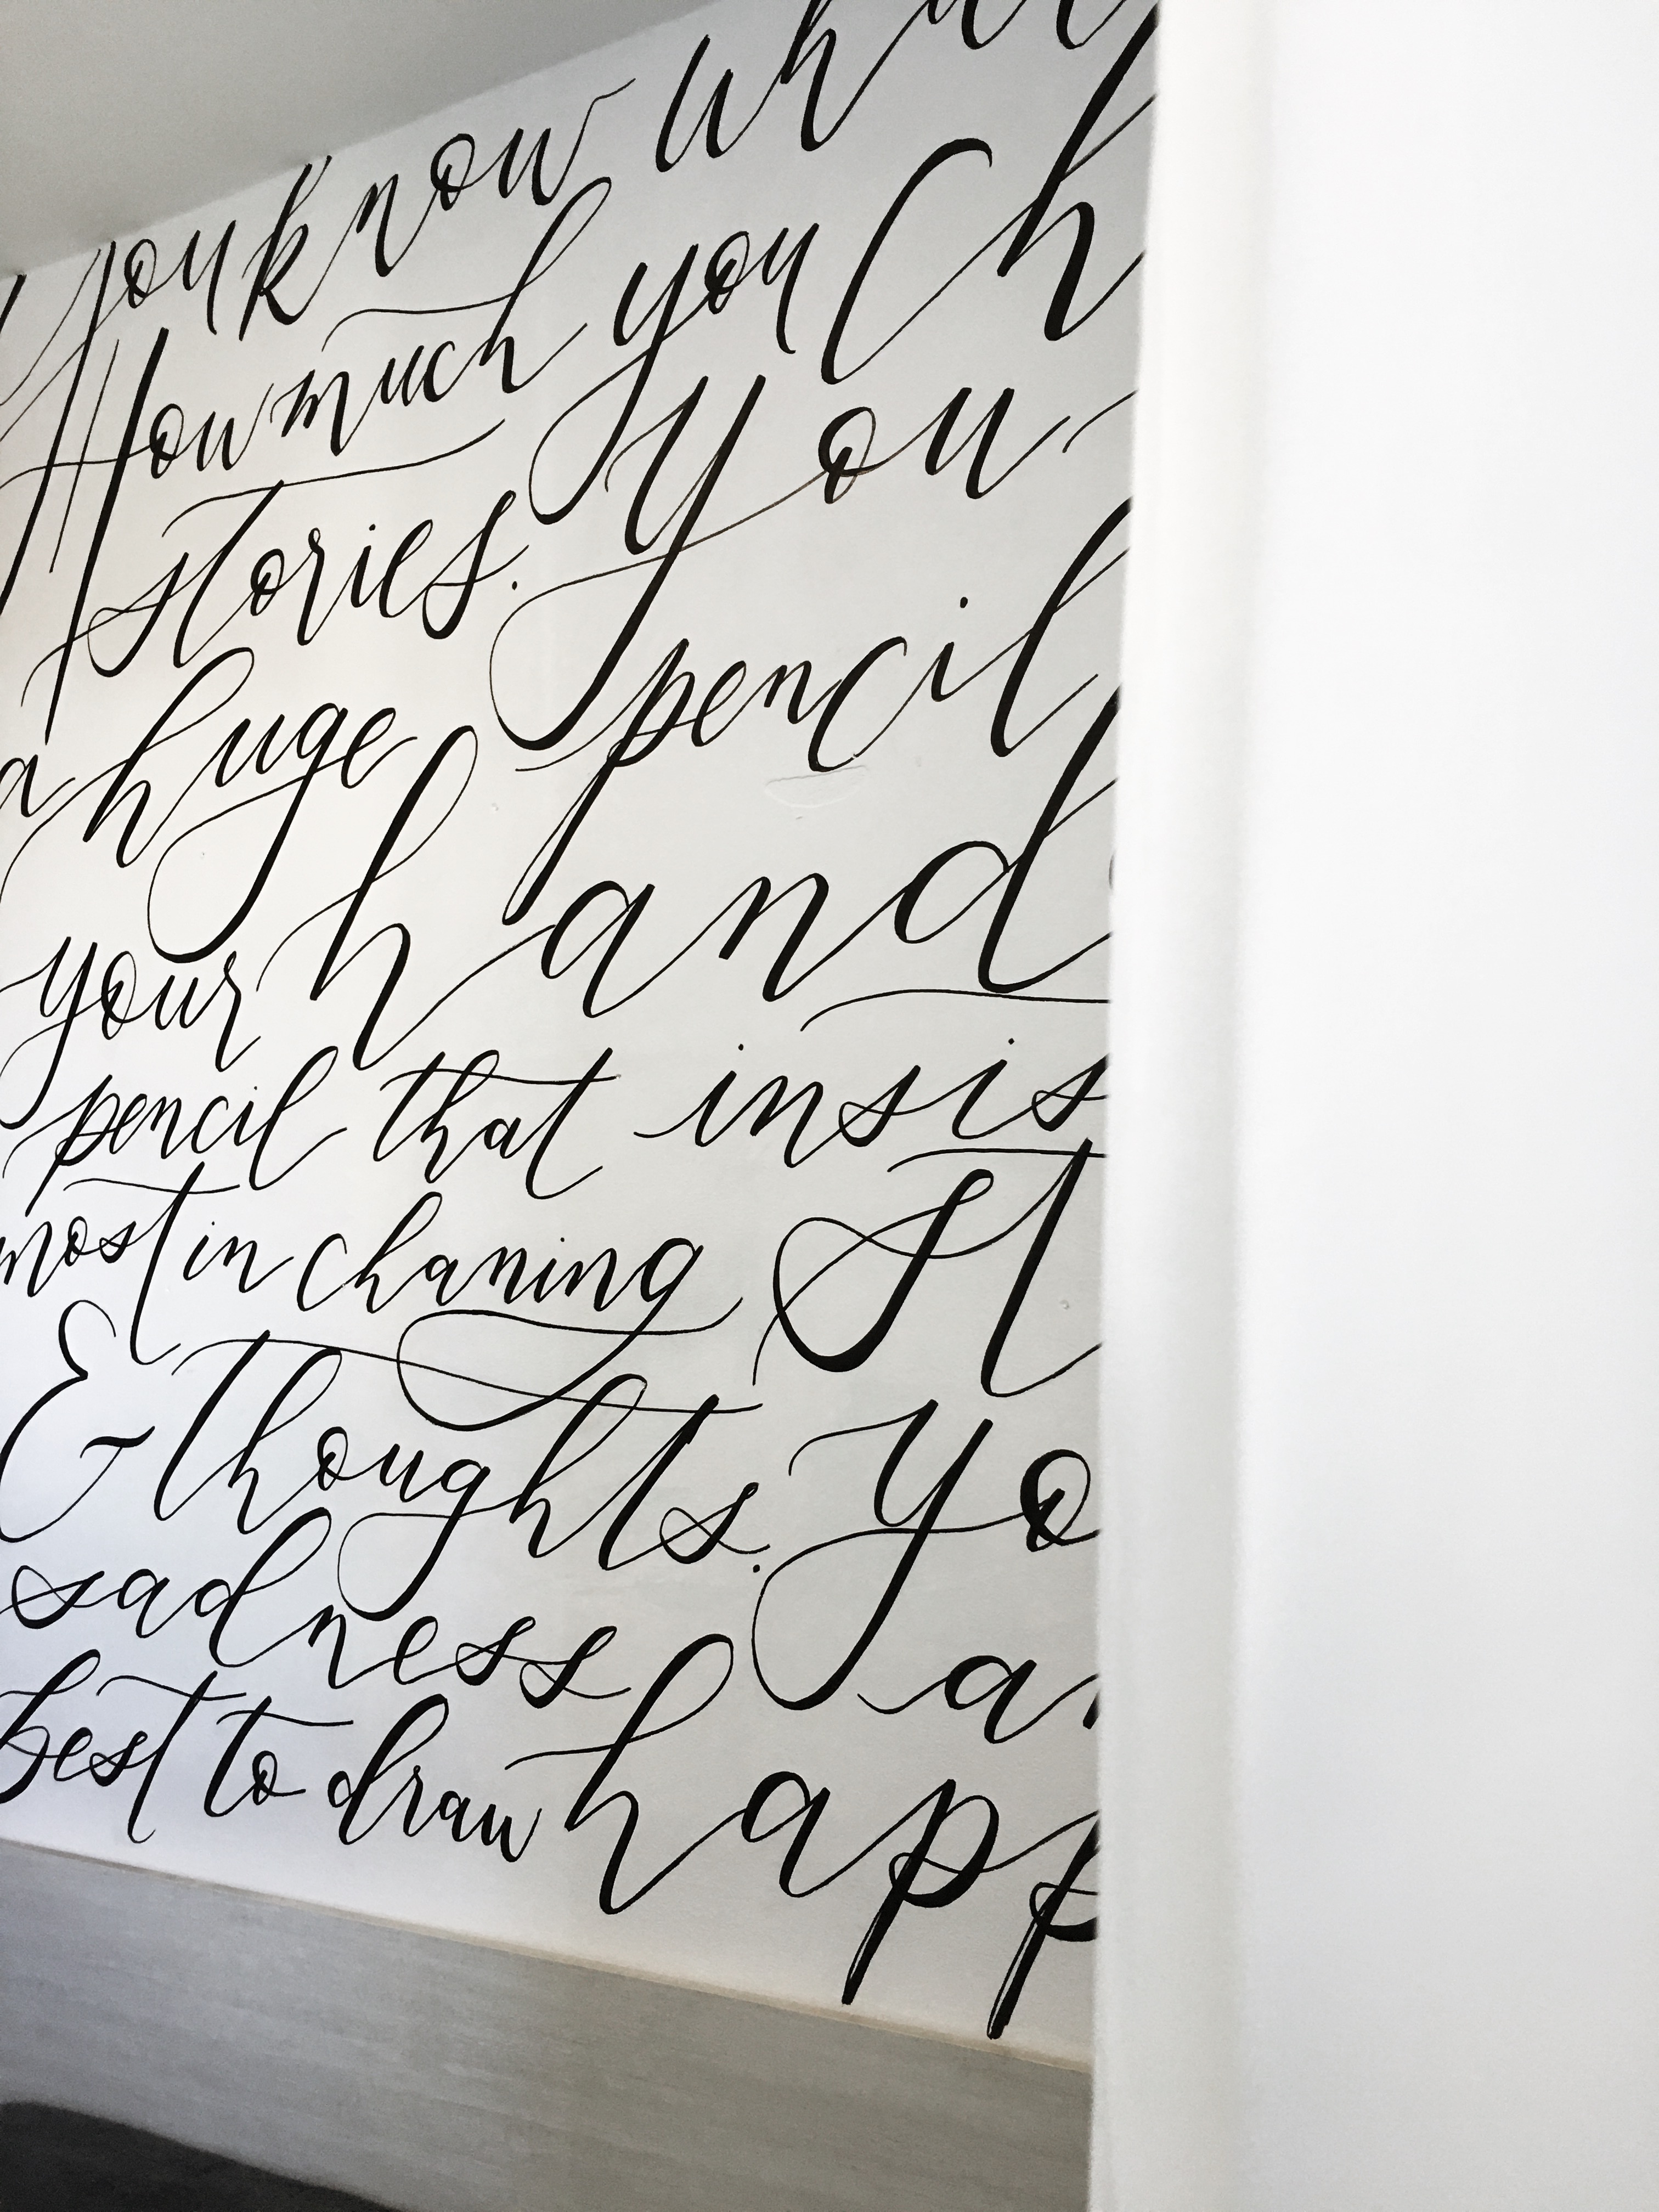 you know
How much you
stories. You
a huge pencil
your hand
pencil that insis
most in chaning St
& thoughts. Yo
sadness
best to draw happ